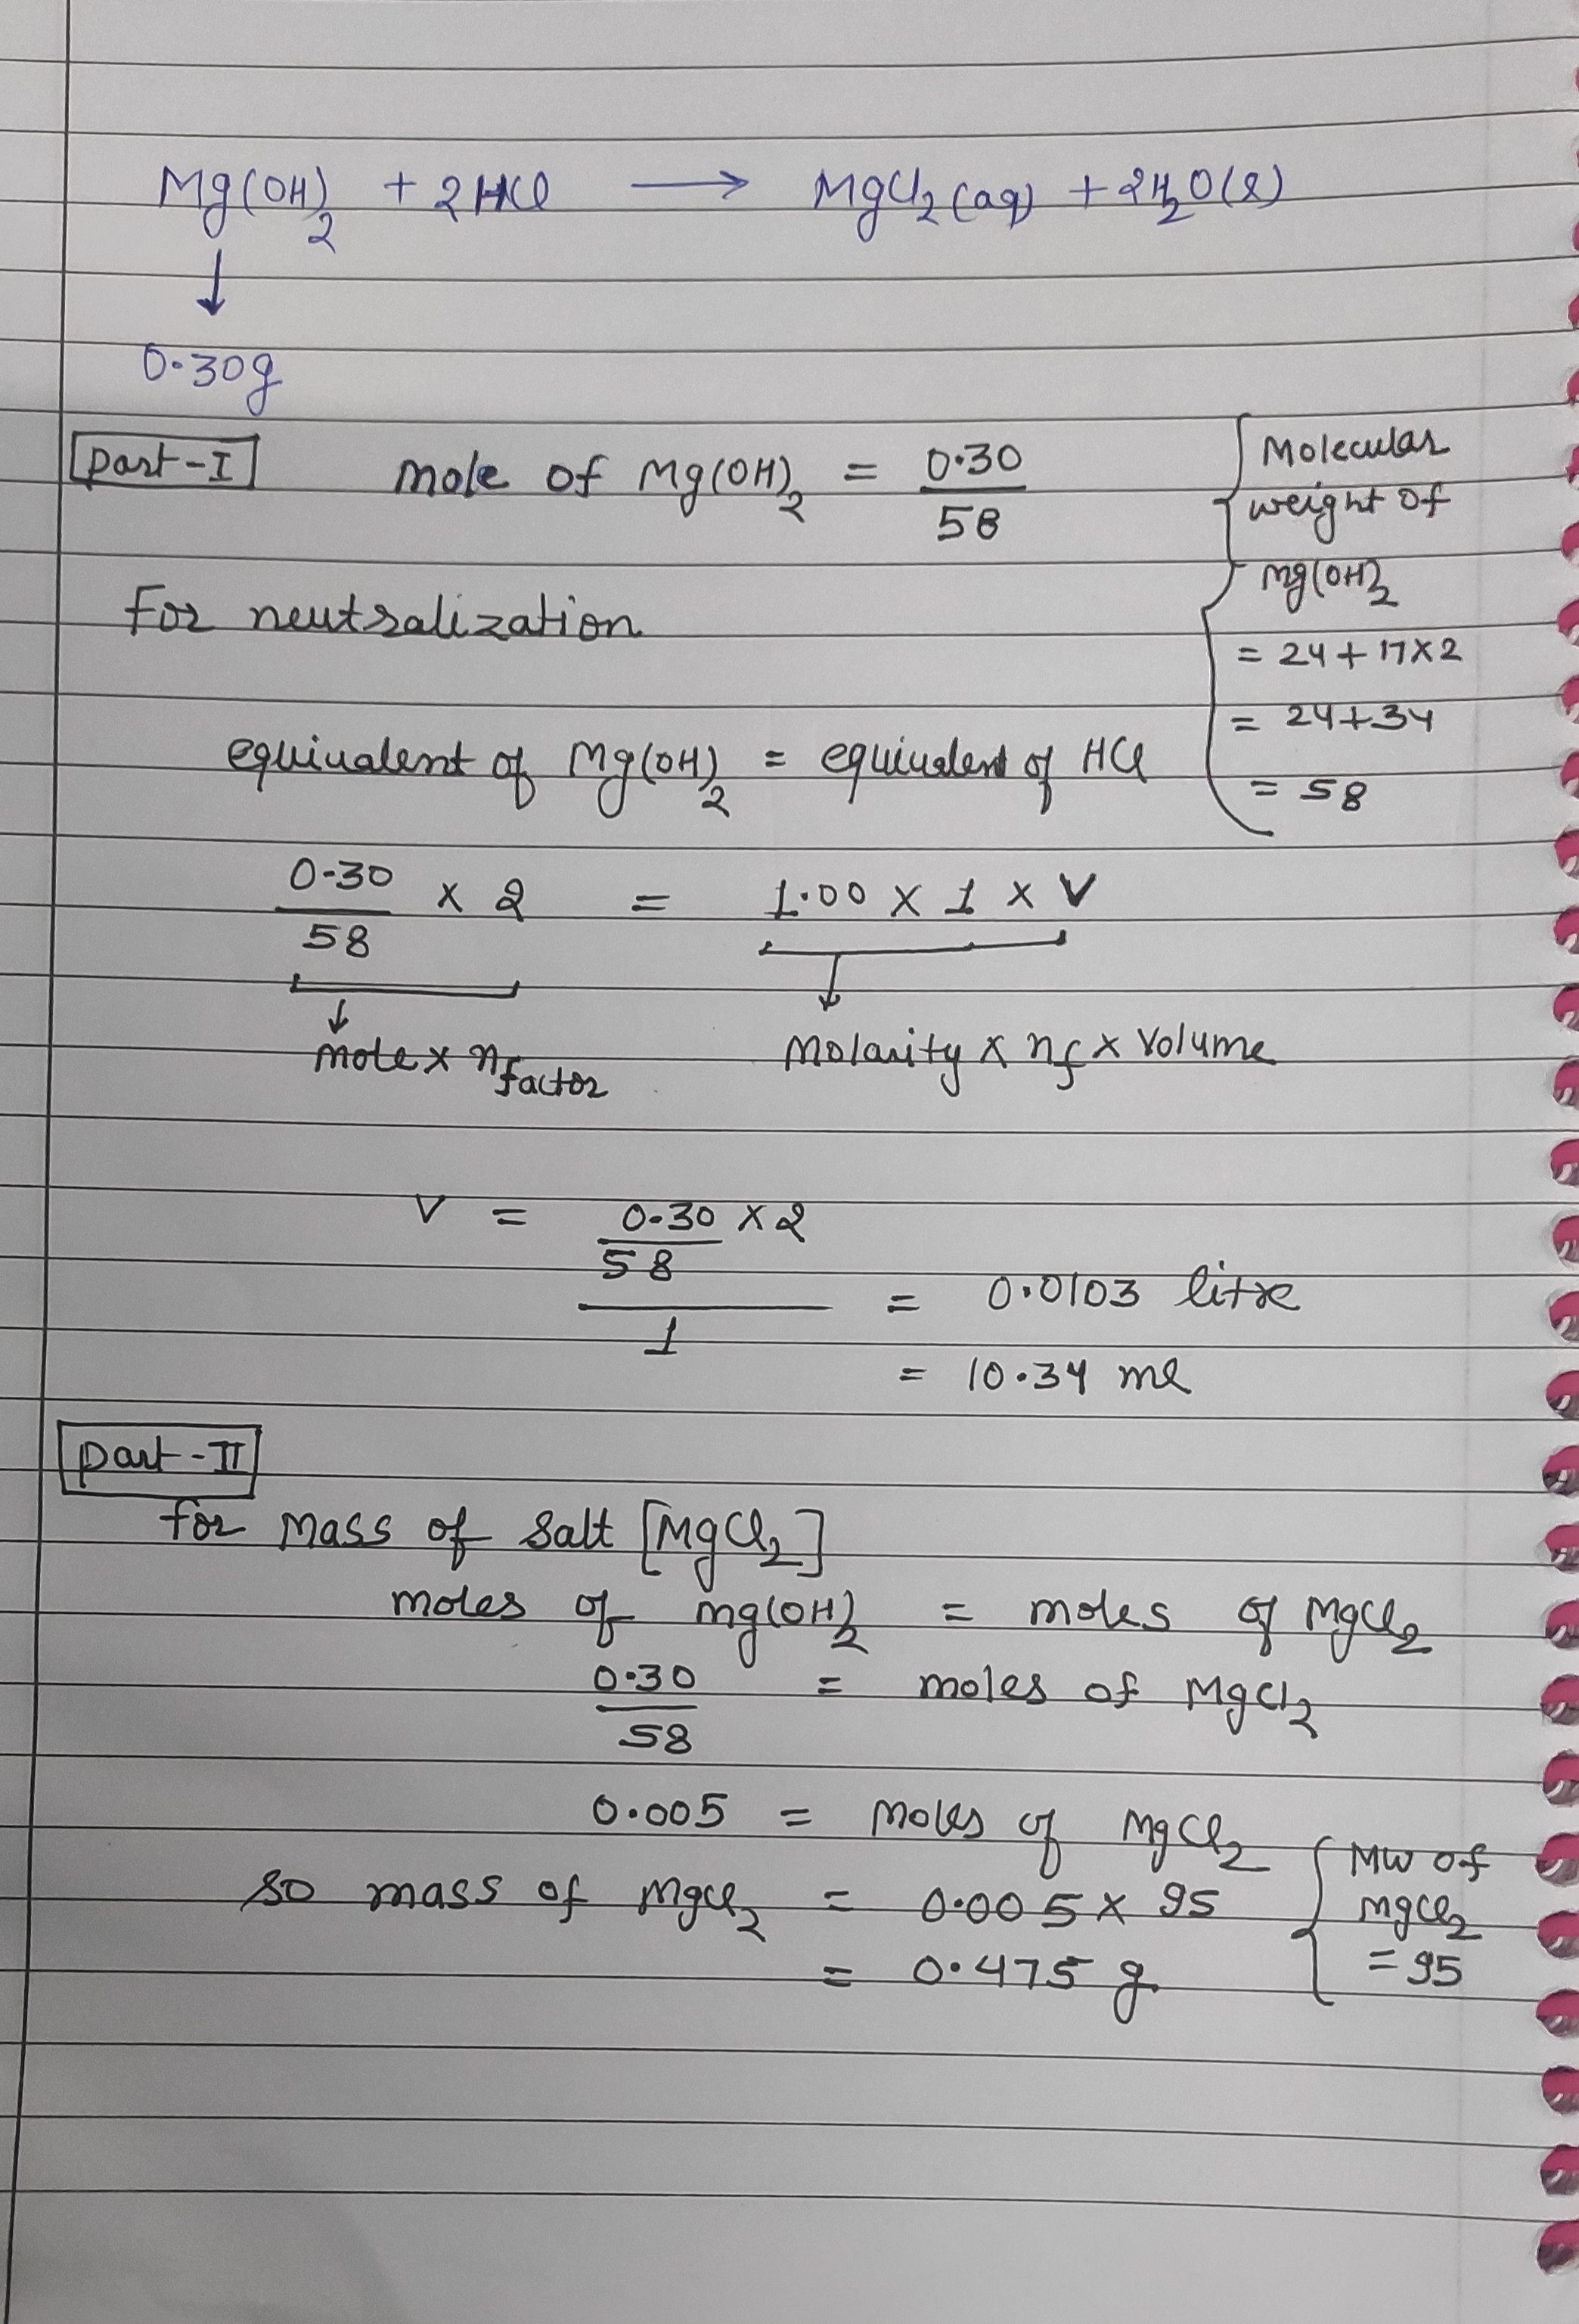 Mg(OH)2 + 2HCl → MgCl2(aq) + 2H2O(l)
↓
0.30g
Part-I mole of Mg(OH)2 = 0.30/58
{Molecular weight of Mg(OH)2
= 24+17×2
= 24+34
= 58
For neutralization
equivalent of Mg(OH)2 = equivalent of HCl
0.30/58 × 2 = 1.00 × 1 × V
↓ ↓
mole× nfactor Molarity × nf × Volume
V = 0.30/58 ×2 / 1 = 0.0103 litre
= 10.34 ml
Part-II
for mass of salt [MgCl2]
moles of mg(OH)2 = moles of MgCl2
0.30/58 = moles of MgCl2
0.005 = moles of MgCl2
so mass of MgCl2 = 0.005× 95
= 0.475 g
{MW of
mgCl2
=95